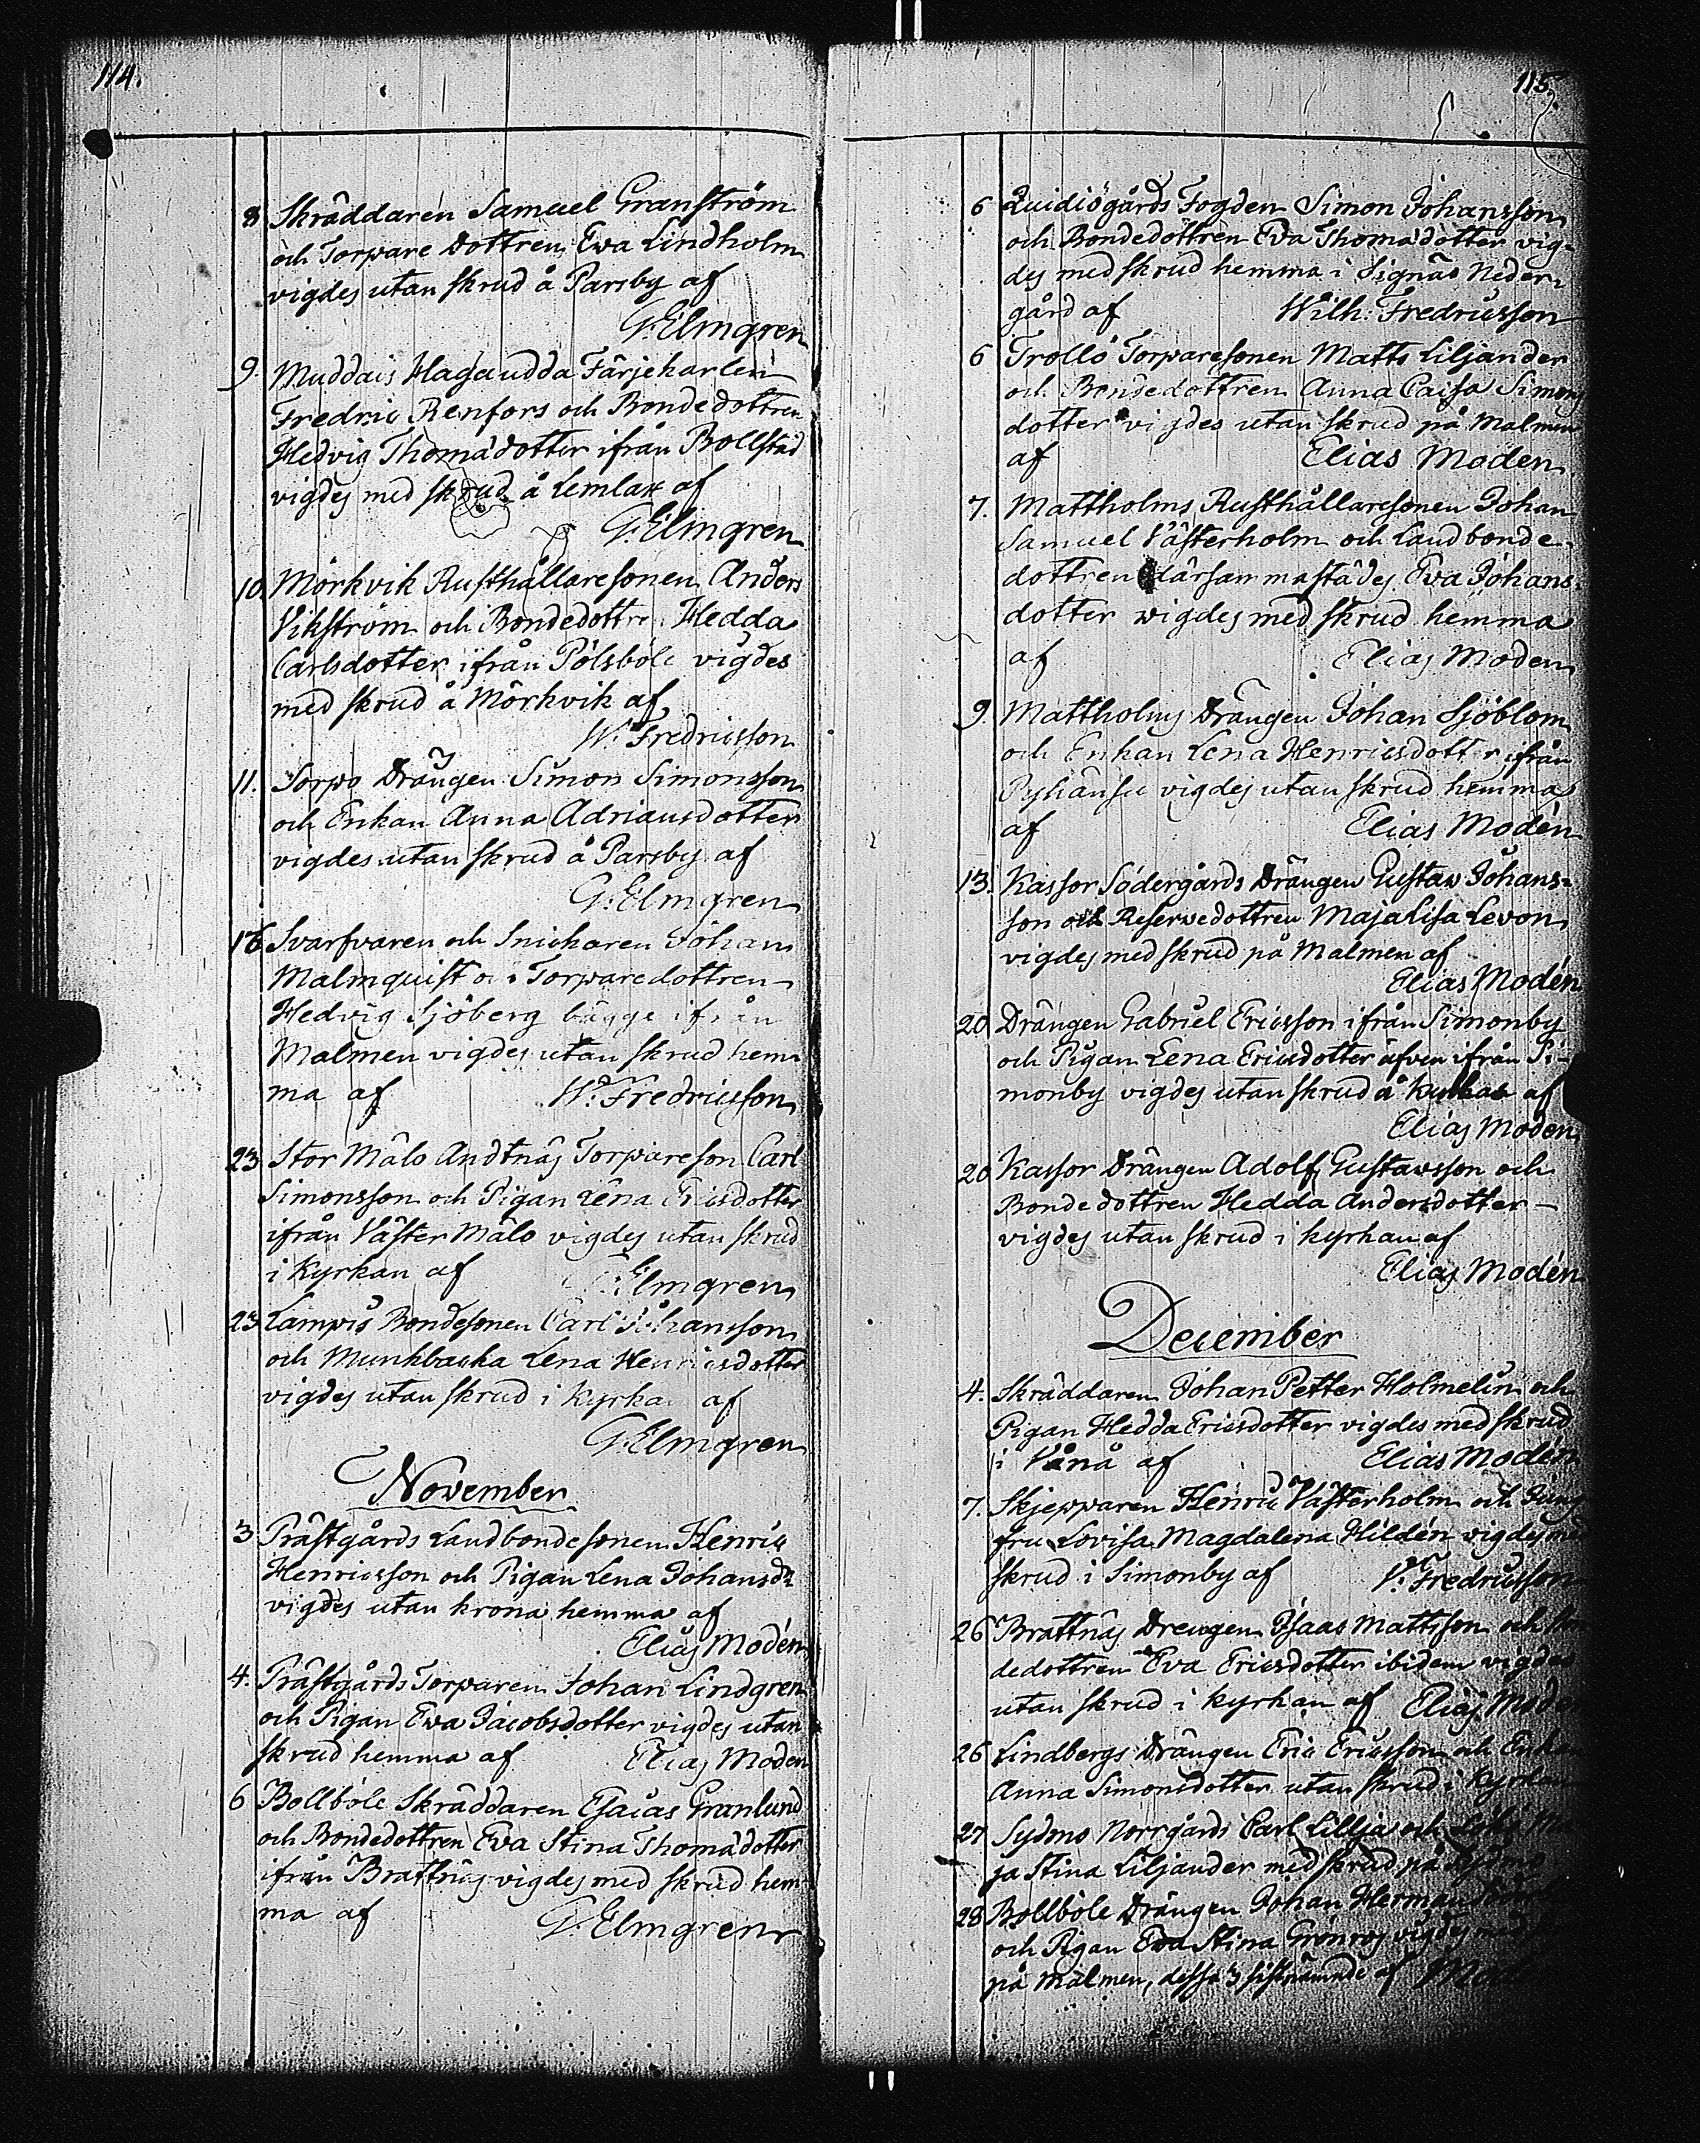 114.
8 Skräddaren Samuel Granström
och Torpare Dottren Ewa Lindholm
vigdes utan skrud å Parsby af
G: Elmgren
9. Muddais Hagaudda Färjekarlen
Fredric Renfors och Bondedottren
Hedvig Thomadotter ifrån Bollstad
vigdes med skrud å Lemlax af
G: Elmgren
10. Mörkvik Rusthållaresonen Anders
Vikström och Bondedottren Hedda
Carlsdotter ifrån Pölsböle vigdes
med skrud å Mörkvik af
W: Fredricsson
11. Sorpo Drängen Simon Simonsson
och Enkan Anna Adriansdotter
vigdes utan skrud å Parsby af
G: Elmgren
16 Svarfvaren och Snickaren Johan
Malmquist och Torparedottren
Hedvig Sjöberg bägge ifrån
Malmen vigdes utan skrud hem-
ma af W: Fredricsson
23 Stor Målo Andtnäs Torpareson Carl
Simonsson och Pigan Lena Ericsdotter
ifrån Väster Målo vigdes utan skrud
i Kyrkan af G: Elmgren
23 Lampis Bondesonen Carl Johansson
och Munkbacka Lena Henricsdotter
vigdes utan skrud i Kyrkan af
G: Elmgren
November
3 Prästgårds Landbondesonen Henric
Henricsson och Pigan Lena Johansdr
vigdes utan krona hemma af
Elias Modén
4. Prästgårds Torparen Johan Lindgren
och Pigan Ewa Jacobsdotter vigdes utan
skrud hemma af Elias Moden
6 Bollböle Skräddaren Esaias Granlund
och Bondedottren Eva Stina Thomadotter
ifrån Brattnäs vigdes med skrud hem-
ma af G: Elmgren
115.
6 Quidiögårds Fogden Simon Johansson
och Bondedottren Eva Thomadotter vig-
des med skrud hemma i Signäs Neder-
gård af Wilh: Fredricsson
6 Trollö Torparesonen Matts Liljander
och Bondedottren Anna Caisa Simons
dotter vigdes utan skrud på Malmen
af Elias Moden
7. Mattholms Rusthållaresonen Johan
Samuel Västerholm och Landbonde-
dottren därsammastädes Eva Johans-
dotter wigdes med skrud hemma
af Elias Moden
9. Mattholms Drängen Johan Sjöblom
och Enkan Lena Henricsdotter ifrån
Pyhänsu vigdes utan skrud hemma
af Elias Modén
13. Kassor Södergårds Drängen Gustav Johans-
son och Reservedottren Maja Lisa Levon
vigdes med skrud på Malmen af
Elias Modén
20 Drängen Gabriel Ericsson ifrån Simonby
och Pigan Lena Ericsdotter äfven ifrån Si-
monby vigdes utan skrud å af
Elias Moden
20 Kassor Drängen Adolf Gustavsson och
Bondedottren Hedda Andersdotter -
vigdes utan skrud i kyrkan af
Elias Modén
December
4. Skräddaren Johan Petter Holmelin och
Pigan Hedda Ericsdotter vigdes med skrud
i Vånå af Elias Modén
7. Skjepparen Henric Västerholm och Jung
fru Lovisa Magdalena Hildén wigdes
skrud i Simonby af W: Fredricsson
26 Brattnäs Drengen Isaac Mattsson och
dedottren Eva Ericsdotter ibidem vigdes
utan skrud i kyrkan af Elias
26 Lindbergs Drängen Eric Ericsson och Enkan
Anna Simonsdotter utan skrud i kyrkan
27 Sydmo Norrgårds Carl Lillja och
ja Stina Liljander med skrud på Sydmo
28 Bollböle Drängen Johan Herman
och Pigan Ewa Stina Grönros vigdes med
på Malmen, dessa 3 sistnämnde af